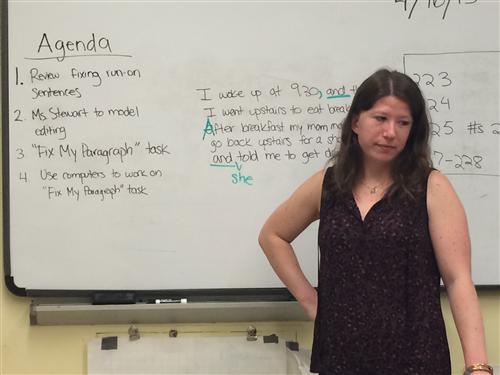 4/10/15
Agenda
1. Review fixing run-on
sentences
2. Ms Stewart to model
editing
3 "Fix My Paragraph" task
4 Use computers to work on
"Fix My Paragraph" task
I woke up at 930, and
I went upstairs to eat
After breakfast my mom
go back upstairs for a
and told me to get
she
223
24
25 #s
7-228